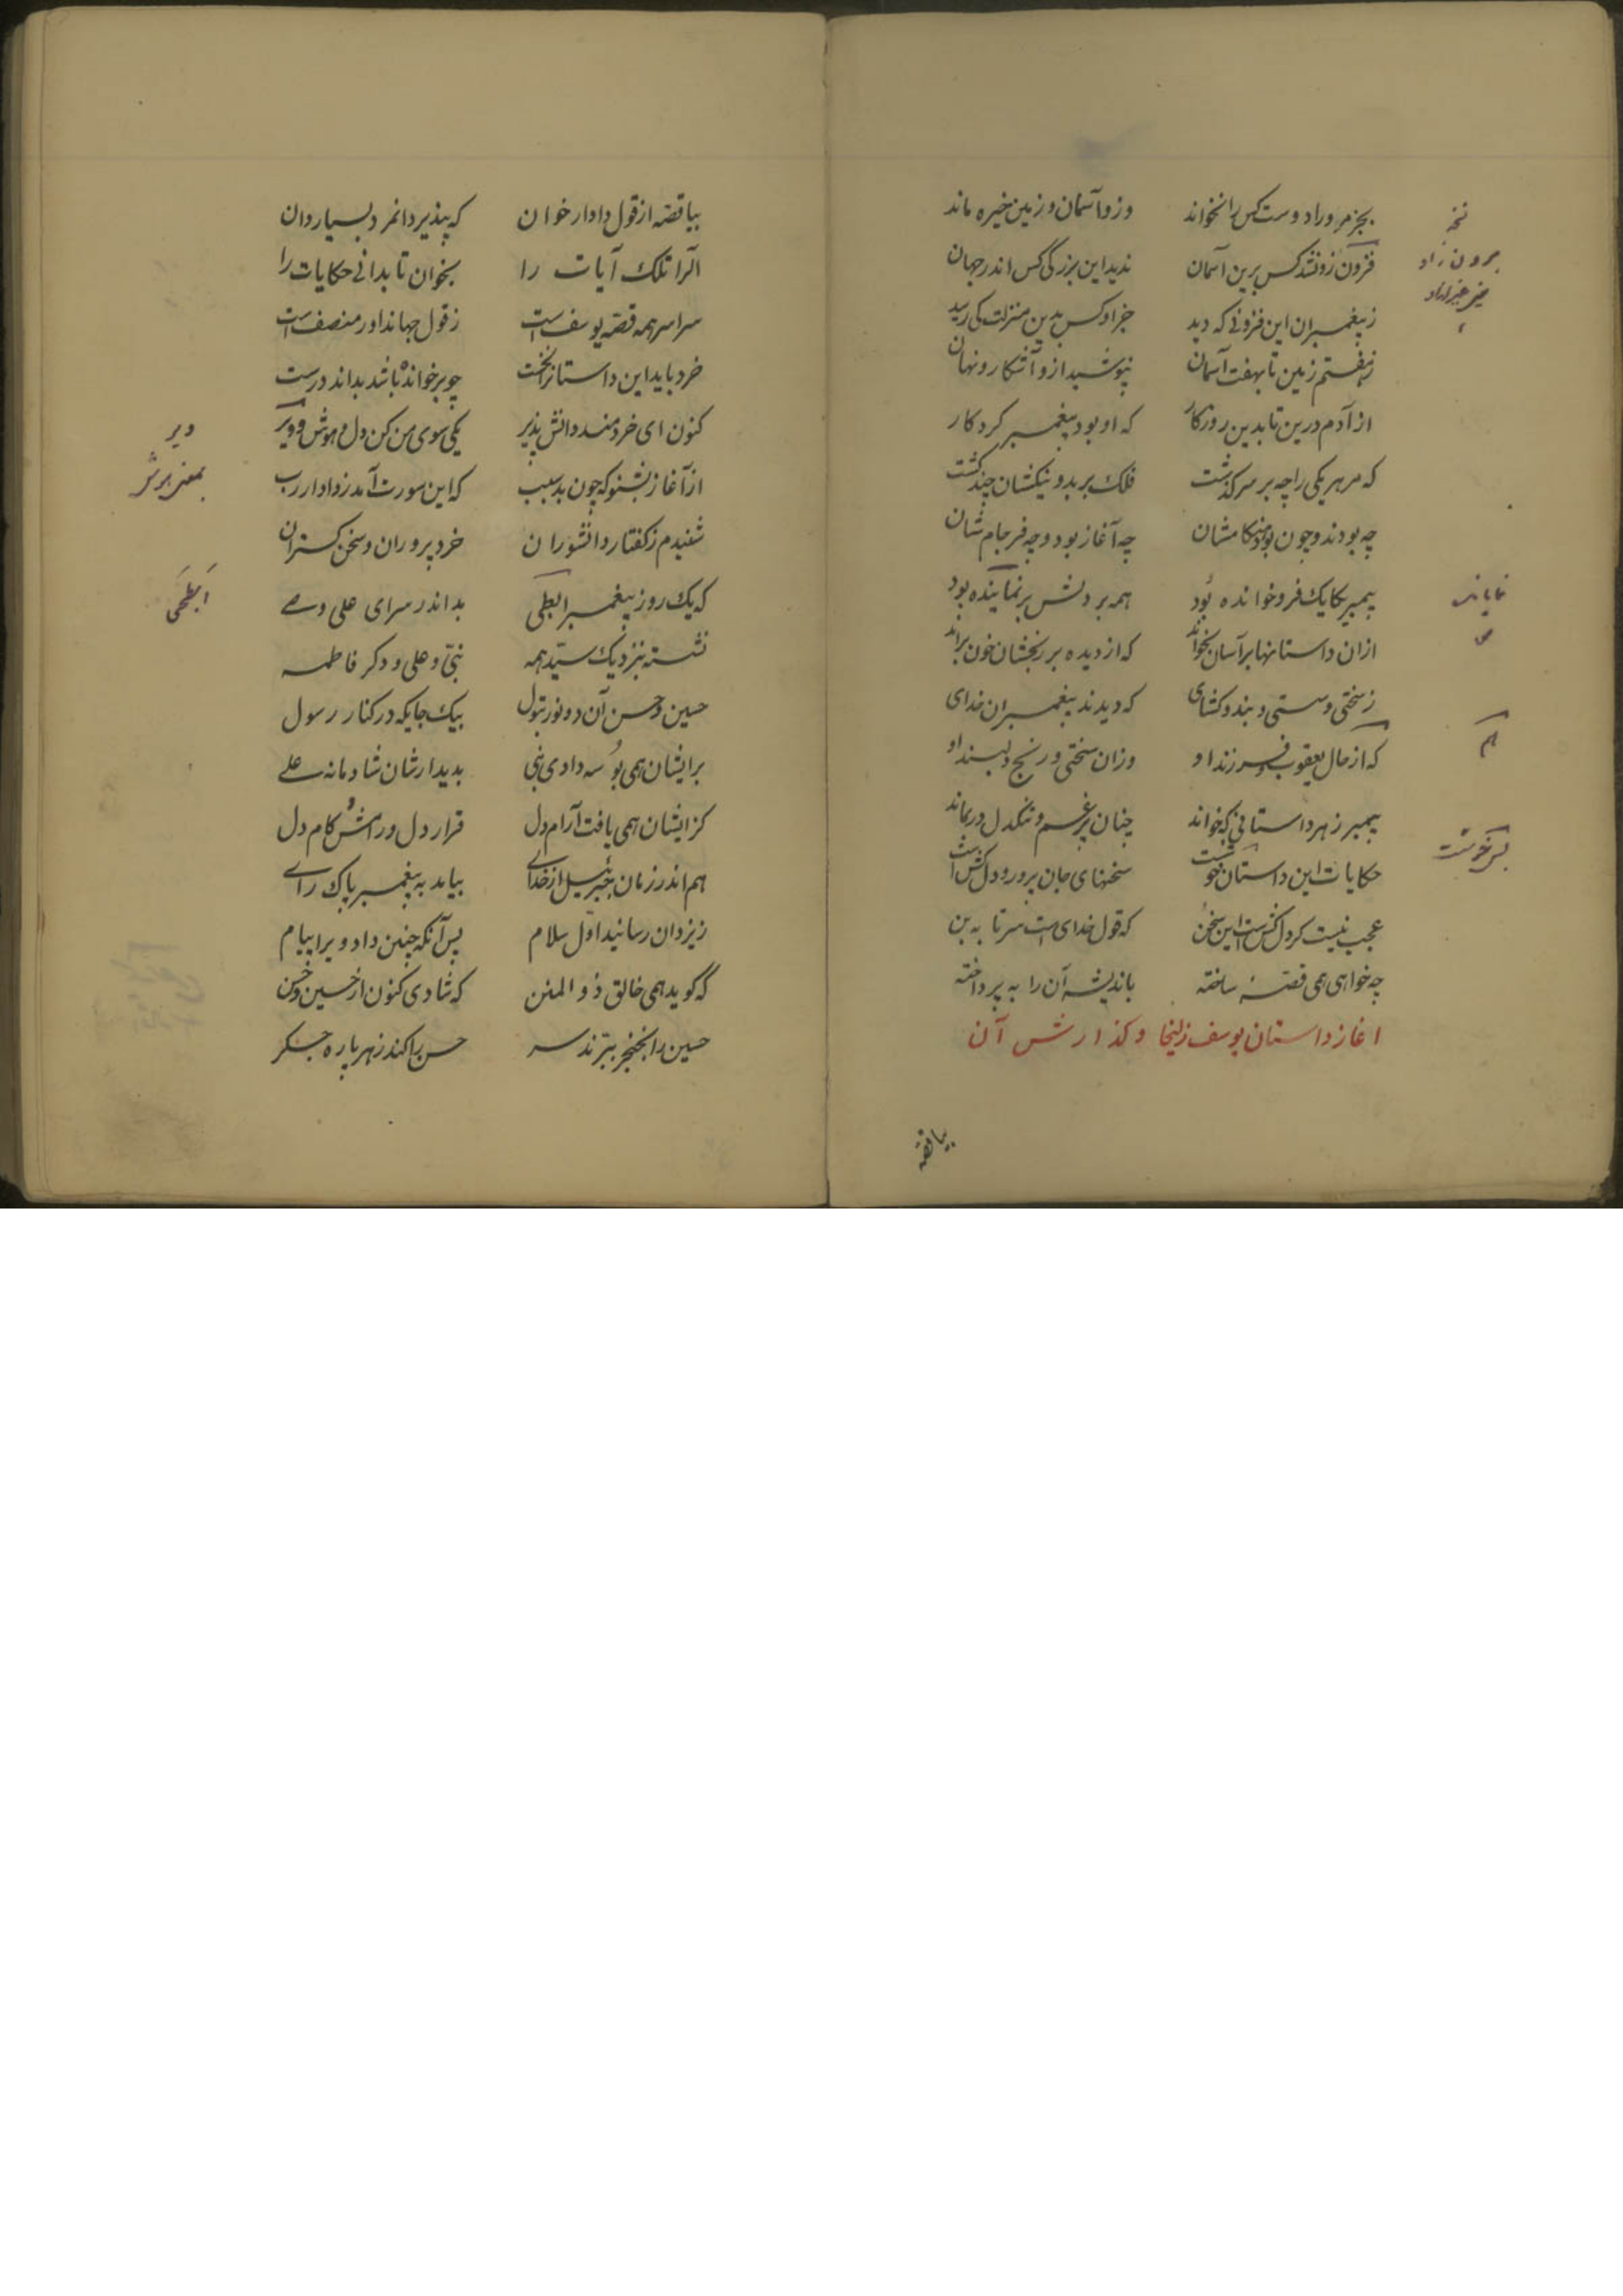 بجز مر ورا دوست کس را نخواند وزو آسمان و زمین خیره ماند
فزون زو نشد کس برین آسمان ندید این بزرگی کس اندر جهان
ز پیغمبران این فزونی که دید جز او کس بدین منزلت کی رسید
ز هفتم زمین تا بهفت آسمان نپوشید ازو آشکار و نهان
از آدم درین تا بدین روزگار که او بود پیغمبر کردکار
که مر هر یکی را چه بر سر گذشت فلک بر بد و نیکشان چند گشت
چه بودند و چون بود هنگامشان چه آغاز بود و چه فرجام شان
پیمبر یکایک فرو خوانده بود همه بر دلش بر نماینده بود
ازان داستانها بر آسان بخواند که از دیده بر رنجشان خون براند
ز سختی و سستی و بند و کشای که دیدند پیغمبران خدای
که از حال یعقوب و فرزند او وزان سختی و رنج و بند او
پیمبر ز هر داستانی که خواند چنان پر غم و تنکدل در نماند
حکایات این داستان خوشست سخنهای جان پرور و دلکش است
عجب نیست کر دلکش است این سخن که قول خدای است سر تا به بن
چه خواهی همی قصهٔ ساخته باندیشه آن را به پرداخته
اغاز داستان یوسف زلیخا و کذارش آن
بیا قصه
نخه
برون زاد
نمایانده
هم
بیا قصه از قول دادار خوان که پذیرد انمرد بسیار دان
الرا تلک آیات را بخوان تا بدانی حکایات را
سراسر همه قصه یوسف است ز قول جهاندار منصف است
خرد باید این داستانرا نخست چو برخوانده باشد بداند درست
کنون ای خردمند دانش پذیر یکی سوی من کن دل و هوش و ویر
از آغاز بشنو که چون بد سبب که این سورت آمد ز دادار رب
شنیدم ز کفتار دانشوران خرد پروران و سخن کستران
که یک روز پیغمبر ابطحی بد اندر سرای علی وصی
نشسته بنزدیک سید همه نبی و علی و دکر فاطمه
حسین و حسن آن دو نور بتول بیک جایکه در کنار رسول
برایشان همی بوسه دادی نبی بدیدارشان شادمانه علی
کزایشان همی یافت آرام دل قرار دل و رامش و کام دل
هم اندر زمان جبرئیل از خدای بیامد به پیغمبر پاک رای
ز یزدان رسانید اول سلام پس آنکه چنین داد ویرا پیام
که گوید همی خالق ذو المنن که شادی کنون از حسین و حسن
حسین را بخنجر ببرند سر حسن را کند زهر پاره جکر
ویر
ابطحی